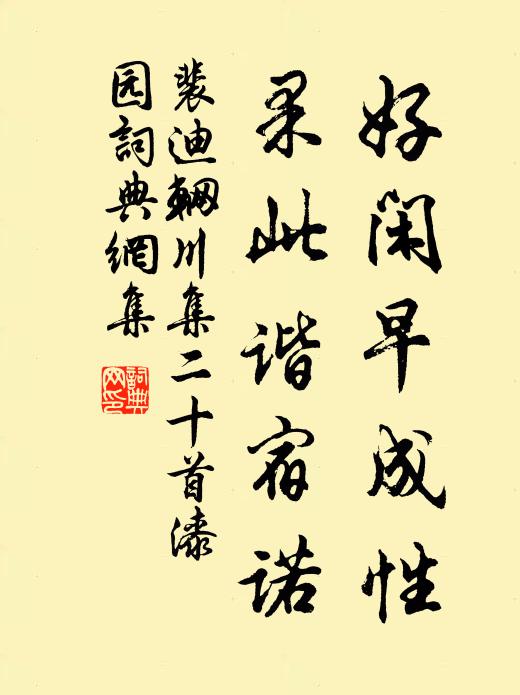 好闲早成性
果此谐宿诺
裴迪輞川集二十首漆
园詞典網集
詞典
网印